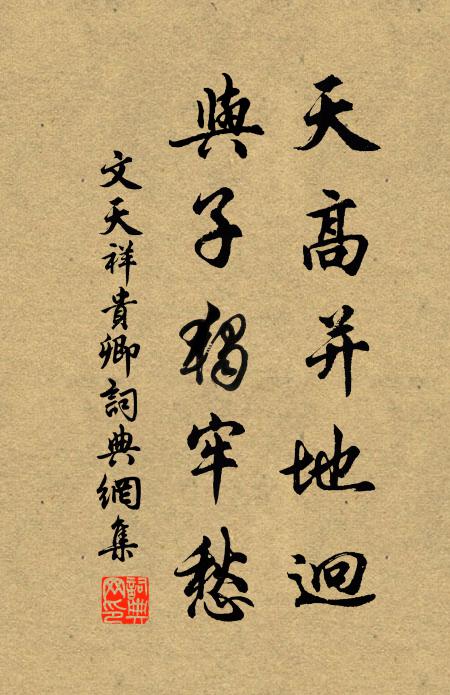 天高并地迥
與子獨牢愁
文天祥貴卿詞典網集
詞典
网印